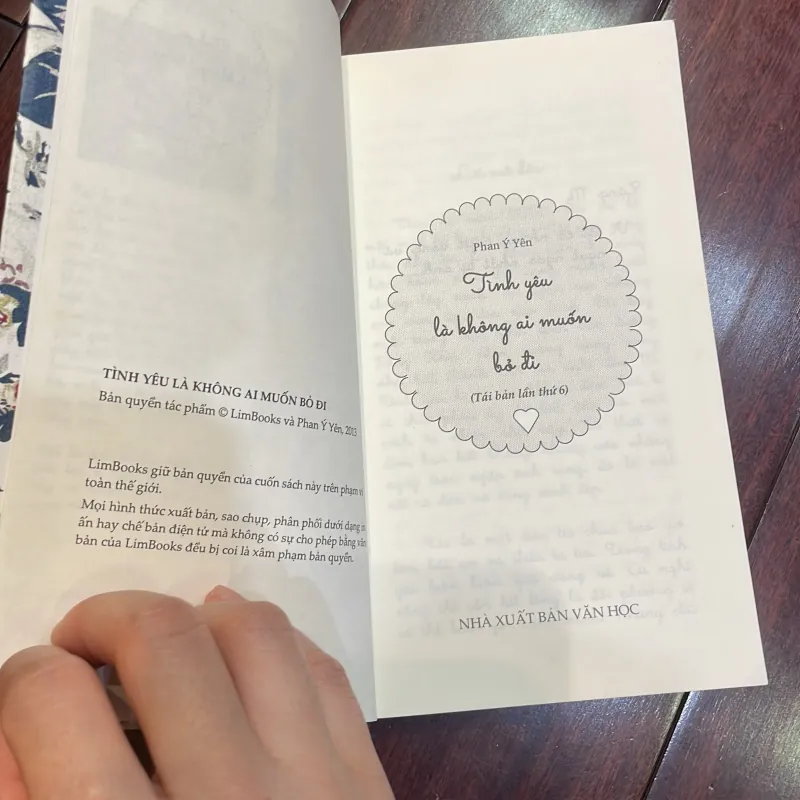 TÌNH YÊU LÀ KHÔNG AI MUỐN BỎ ĐI
Bản quyền tác phẩm © LimBooks và Phan Ý Yên, 2013
LimBooks giữ bản quyền của cuốn sách này trên phạm vi
toàn thế giới.
Mọi hình thức xuất bản, sao chụp, phân phối dưới dạng in
ấn hay chế bản điện tử mà không có sự cho phép bằng văn
bản của LimBooks đều bị coi là xâm phạm bản quyền.
Phan Ý Yên
Tình yêu
là không ai muốn
bỏ đi
(Tái bản lần thứ 6)
NHÀ XUẤT BẢN VĂN HỌC